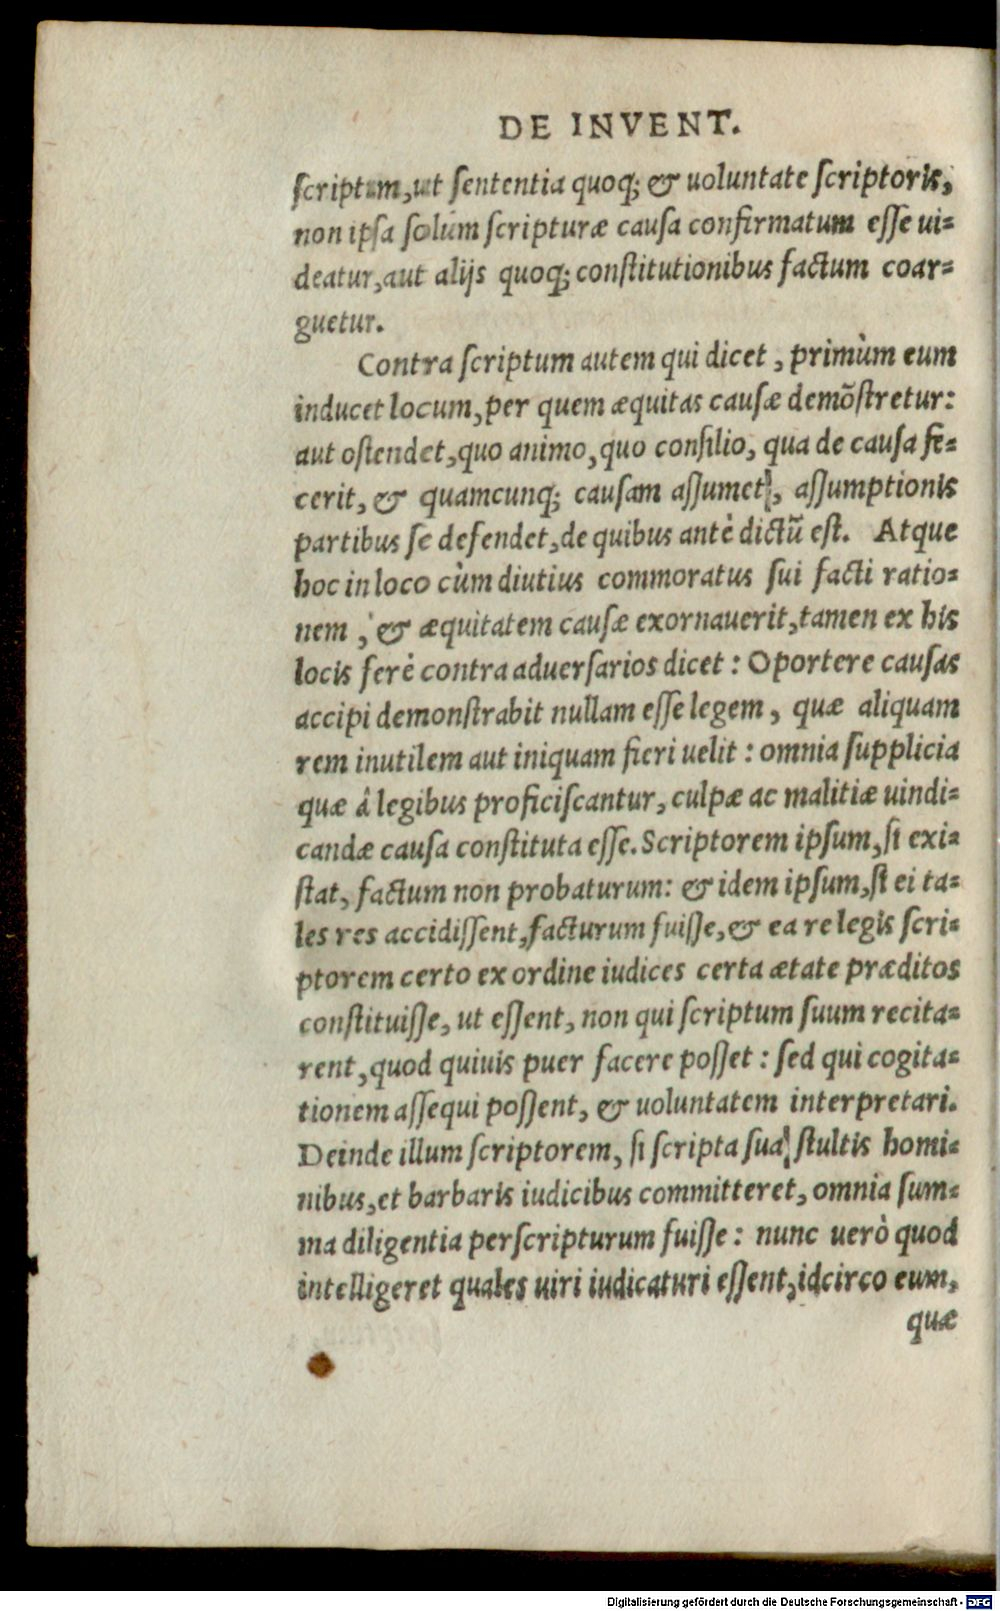 DE INVENT.
scriptum, ut sententia quoq; & uoluntate scriptoris,
non ipsa solùm scripturæ causa confirmatum esse ui-
deatur, aut alijs quoq; constitutionibus factum coar-
guetur.
Contra scriptum autem qui dicet, primùm eum
inducet locum, per quem æquitas causæ demõstretur:
aut ostendet, quo animo, quo consilio, qua de causa fe-
cerit, & quamcunq; causam assumet, assumptionis
partibus se defendet, de quibus antè dictũ est. Atque
hoc in loco cùm diutius commoratus sui facti ratio-
nem, & æquitatem causæ exornauerit, tamen ex his
locis ferè contra aduersarios dicet: Oportere causas
accipi demonstrabit nullam esse legem, quæ aliquam
rem inutilem aut iniquam fieri uelit: omnia supplicia
quæ à legibus proficiscantur, culpæ ac malitiæ uindi-
candæ causa constituta esse. Scriptorem ipsum, si exi-
stat, factum non probaturum: & idem ipsum, si ei ta-
les res accidissent, facturum fuisse, & ea re legis scri-
ptorem certo ex ordine iudices certa ætate præditos
constituisse, ut essent, non qui scriptum suum recita-
rent, quod quiuis puer facere posset: sed qui cogita-
tionem assequi possent, & uoluntatem interpretari.
Deinde illum scriptorem, si scripta sua stultis homi-
nibus, et barbaris iudicibus committeret, omnia sum-
ma diligentia perscripturum fuisse: nunc uerò quod
intelligeret quales uiri iudicaturi essent, idcirco eum,
quæ
Digitalisierung gefördert durch die Deutsche Forschungsgemeinschaft - DFG